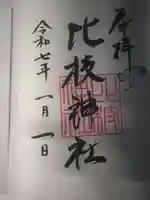 奉拝
比枝神社
令和七年 一月 一日